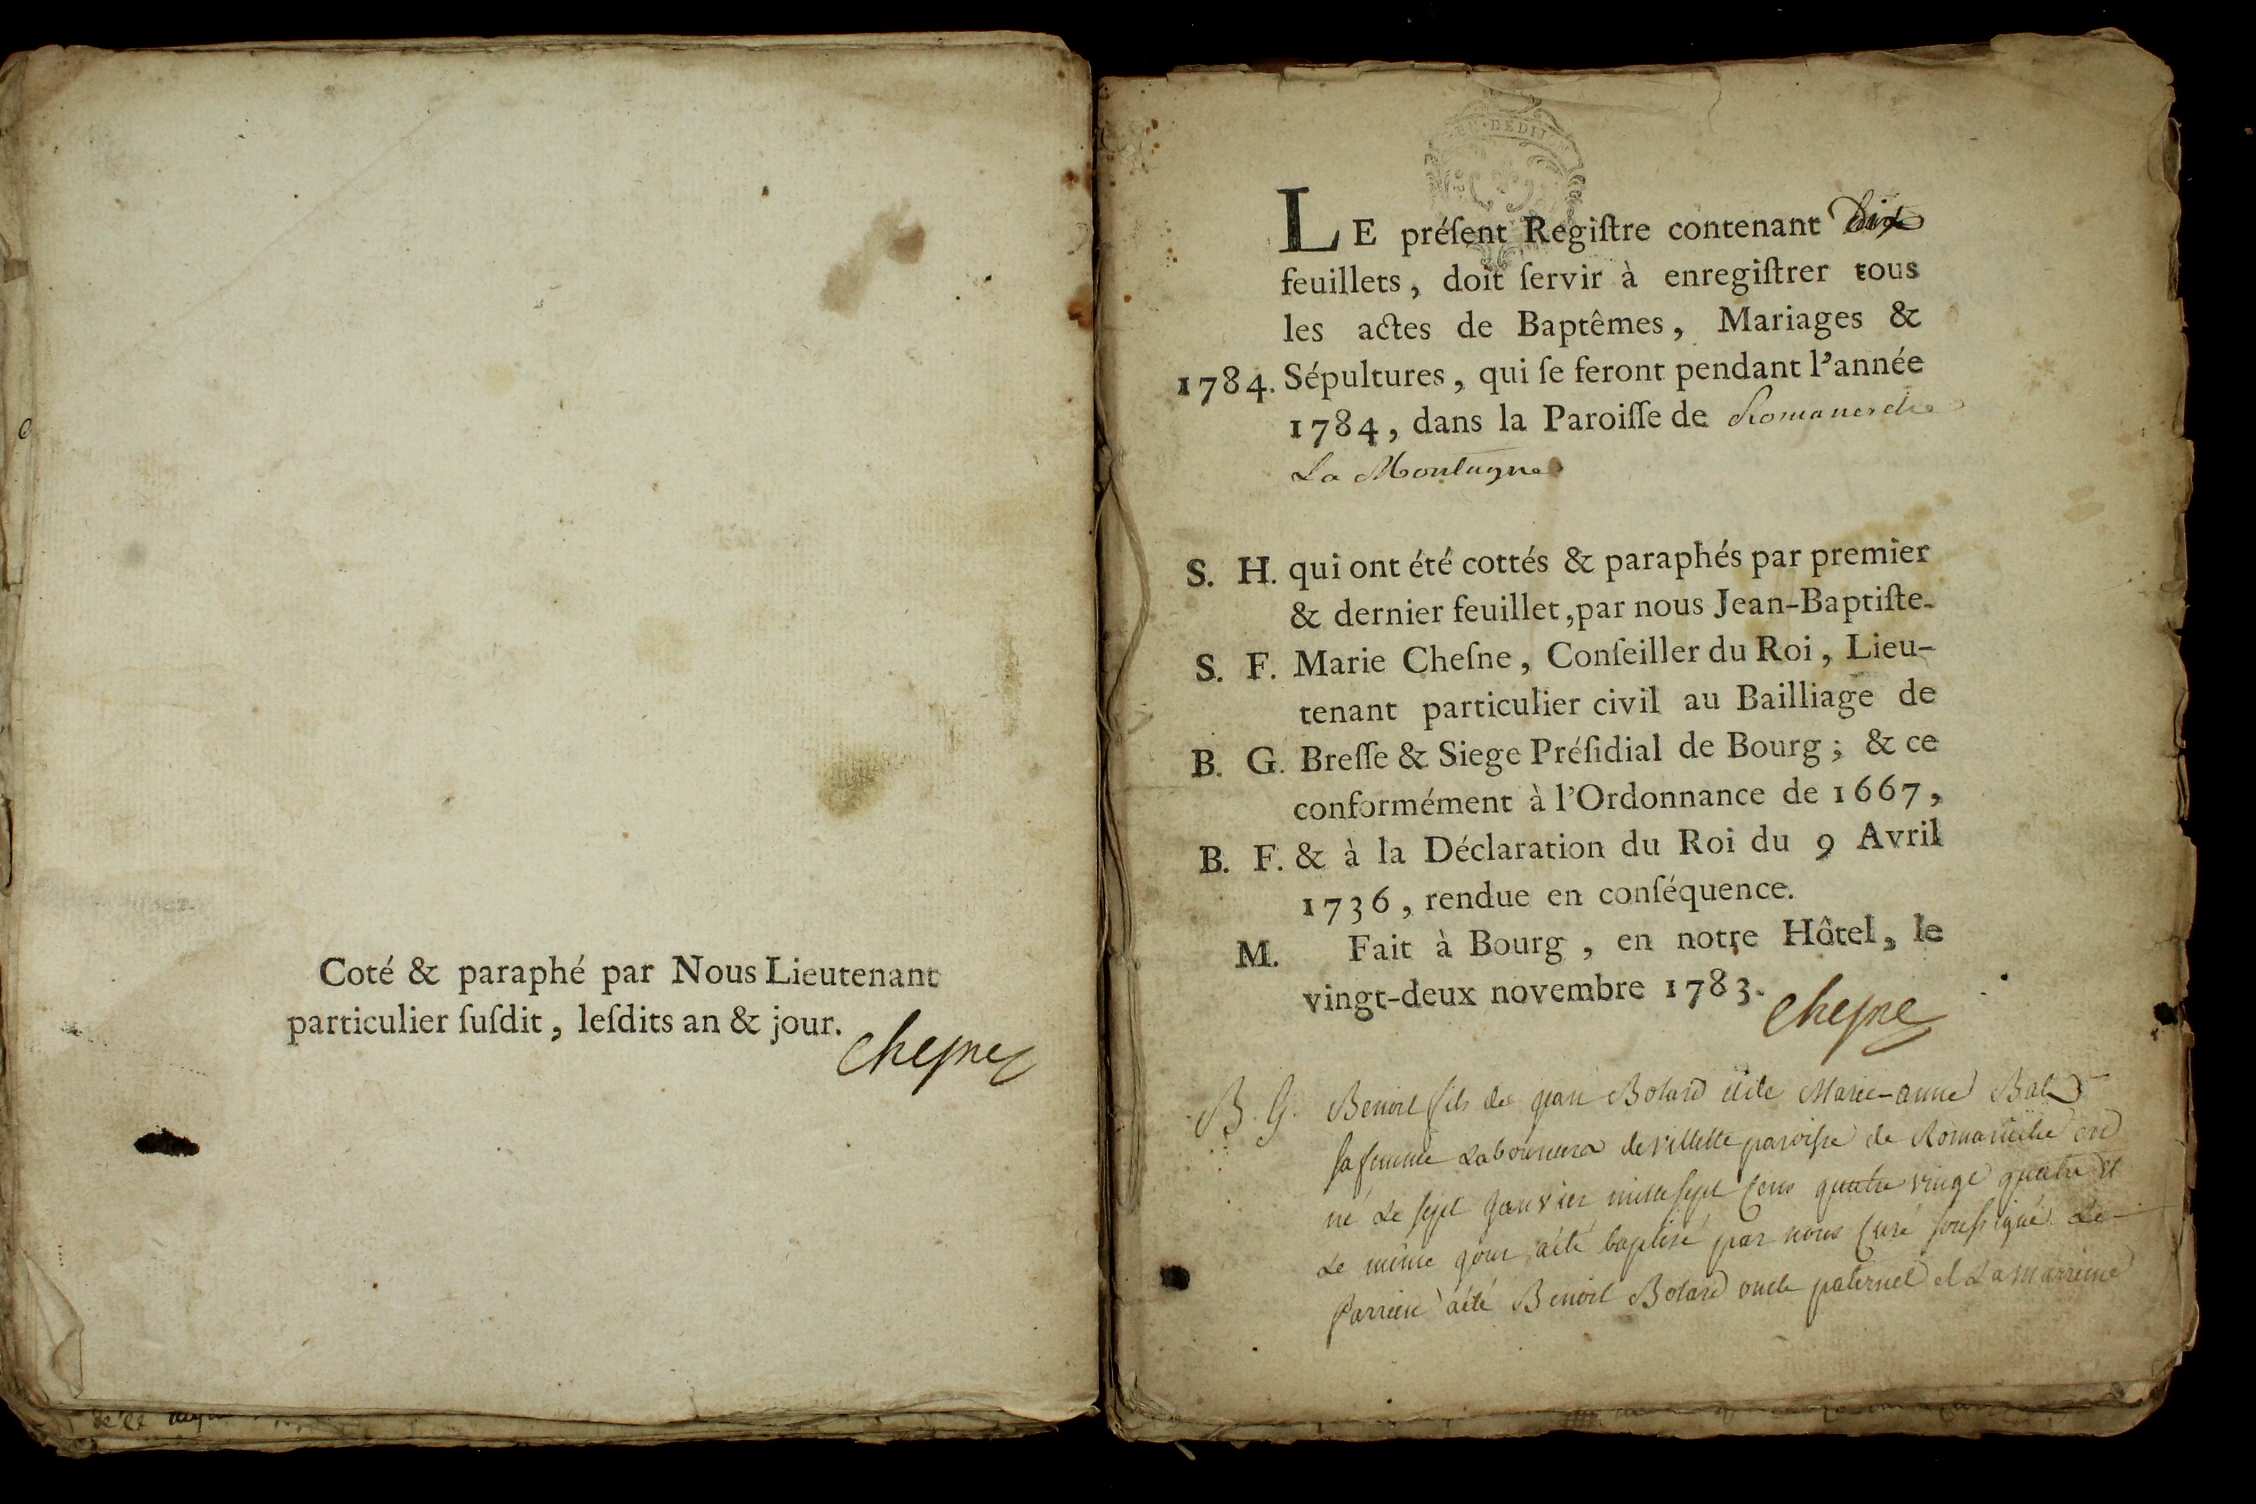 Coté & paraphé par Nous Lieutenant
particulier ſuſdit, leſdits an & jour.
Cheſne
LE préſent Regiſtre contenant Dix
feuillets, doit ſervir à enregiſtrer tous
les actes de Baptêmes, Mariages &
1784. Sépultures, qui ſe feront pendant l'année
1784, dans la Paroiſſe de Romaneche
La Montagne
S. H. qui ont été cottés & paraphés par premier
& dernier feuillet, par nous Jean-Baptiſte-
S. F. Marie Cheſne, Conſeiller du Roi, Lieu-
tenant particulier civil au Bailliage de
B. G. Breſſe & Siege Préſidial de Bourg; & ce
conformément à l'Ordonnance de 1667,
B. F. & à la Déclaration du Roi du 9 Avril
1736, rendue en conſéquence.
M. Fait à Bourg, en notre Hôtel, le
vingt-deux novembre 1783.
Cheſne
B. G. Benoit fils de jean Botard et de Marie-anne
sa femme Laboureurs de villette paroisse de Romaneche
né Le sept janvier mille sept cens quatre vingt quatre et
Le même jour aété baptisé par nous Curé soussigné. Le
Parrein aété Benoit Botard oncle paternel et La marreine